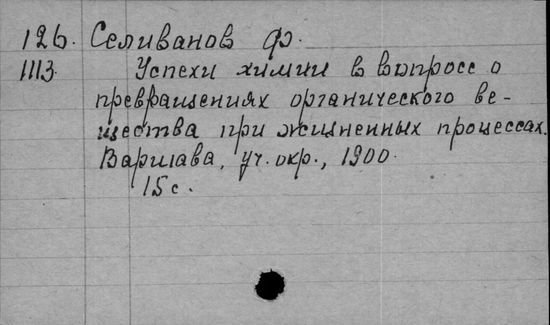 126. Селиванов Ф.
1113. Успехи химии в вопросе о
превращениях органического ве-
щества при жизненных процессах.
Варшава, уч. окр., 1900.
15 с.